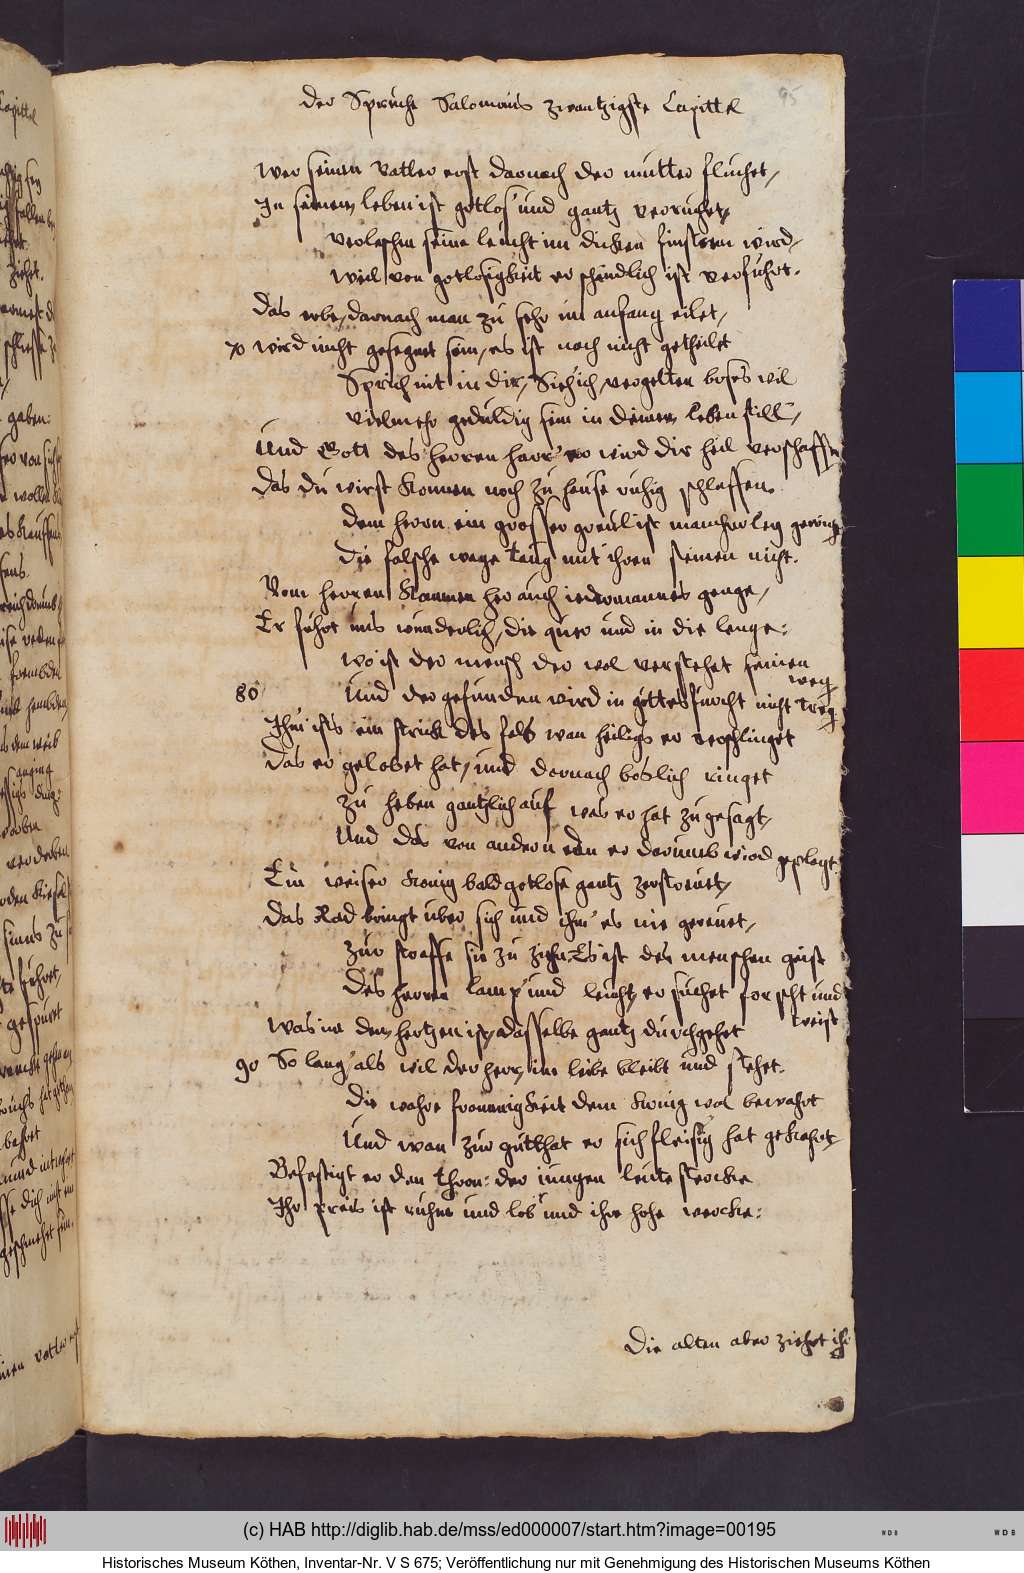 Der Spruche Salomonis zwantzigste Capittel
95
Wer seinen Vatter erst darnach der mutter fluchet,
In seinem leben ist gotlos und gantz verruget,
Verleschen seine leucht im dicken finstern wird,
Weil von gotlosigkeit er schendlich ist verfuhrt.
Das erbe, darnach man zu sehr im anfang eilet,
70 wird nicht gesegnet sein, es ist noch nicht getheilet
Sprich nit in dir, Sieh ich vergelten boses wil
Vielmehr geduldig sein in deinem leben still,
Und Gott des herren harr' er wird dir heil verschaffen
Das du wirst konnen noch zu hause ruhig schlaffen.
Dem herrn ein grosser greul ist mancherley gewicht
Die falsche wage taug mit ihren steinen nicht.
Vom herren kommen her auch iedermannes genge,
Er fuhrt uns wunderlich, die quer und in die lenge:
Wo ist der mensch der wol verstehet seinen
weg
80 Und der gefunden wird in gottesfurcht nicht treg
Ihm ists ein strick des fals wan heiligs er verschlinget
Das er gelobet hat, und darnach böslich ringet
Zu heben gantzlich auf was er hat zugesagt,
Und das von andern dan er darumb wird geplagt.
Ein weiser Konig bald gotlose gantz zerstreuet,
Das Rad bringt uber sich und ihm' es nie gereuet,
Zur straffe sie zu ziehn. Es ist der menschen geist
Des herren lamp' und leucht, er suchet forscht und
weist
Was in dem hertzen ist, dasselbe gantz durchgehet
90 So lang' als wil der herr, im leibe bleibt und stehet.
Die wahre frommigkeit dem Konig wol bewahrt
Und wan zur gutthat er sich fleisig hat gekahrt,
Befestigt er den thron: der iungen leute stercke
Ihr preis ist ruhm und lob und ihre hohe wercke:
Die alten aber ziehrt ihr
(c) HAB http://diglib.hab.de/mss/ed000007/start.htm?image=00195
WDB
WDB
Historisches Museum Köthen, Inventar-Nr. V S 675; Veröffentlichung nur mit Genehmigung des Historischen Museums Köthen